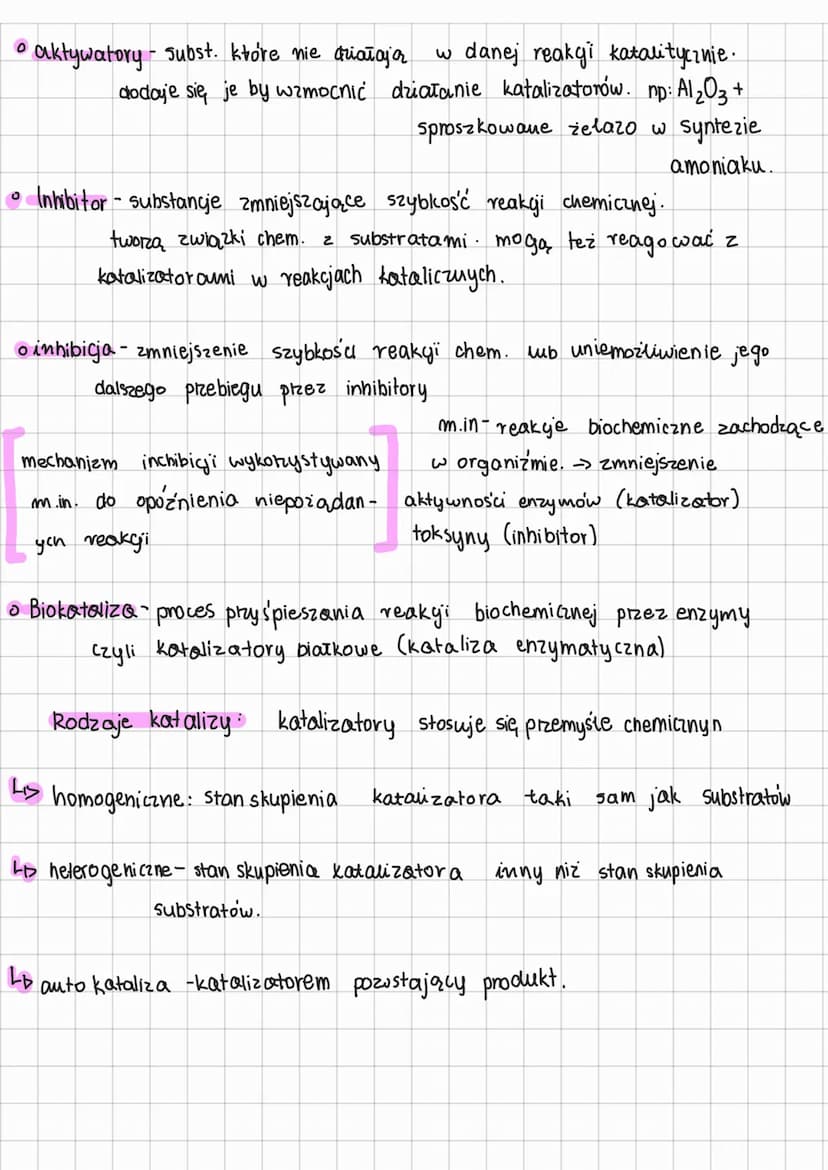 aktywatory - subst. które nie działają w danej reakcji katalitycznie.
dodaje się je by wzmocnić działanie katalizatorów. np: Al₂O₃ +
sproszkowane żelazo w syntezie
amoniaku.
Inhibitor - substancje zmniejszające szybkość reakcji chemicznej.
tworzą związki chem. z substratami. mogą też reagować z
katalizatorami w reakcjach katalicznych.
inhibicja - zmniejszenie szybkości reakcji chem. lub uniemożliwienie jego
dalszego przebiegu przez inhibitory
mechanizm inchibicji wykorzystywany
m.in. do opóźnienia niepożądan-
ych reakcji
m.in - reakcje biochemiczne zachodzące
w organiźmie. → zmniejszenie
aktywności enzymów (katalizator)
toksyny (inhibitor)
Biokataliza - proces przyśpieszania reakcji biochemicznej przez enzymy
czyli katalizatory białkowe (kataliza enzymatyczna)
Rodzaje katalizy: katalizatory stosuje się przemyśle chemicznyn
↳ homogeniczne: stan skupienia katalizatora taki sam jak substratów
↳ heterogeniczne - stan skupienia katalizatora inny niż stan skupienia
substratów.
↳ auto kataliza - katalizatorem pozostający produkt.